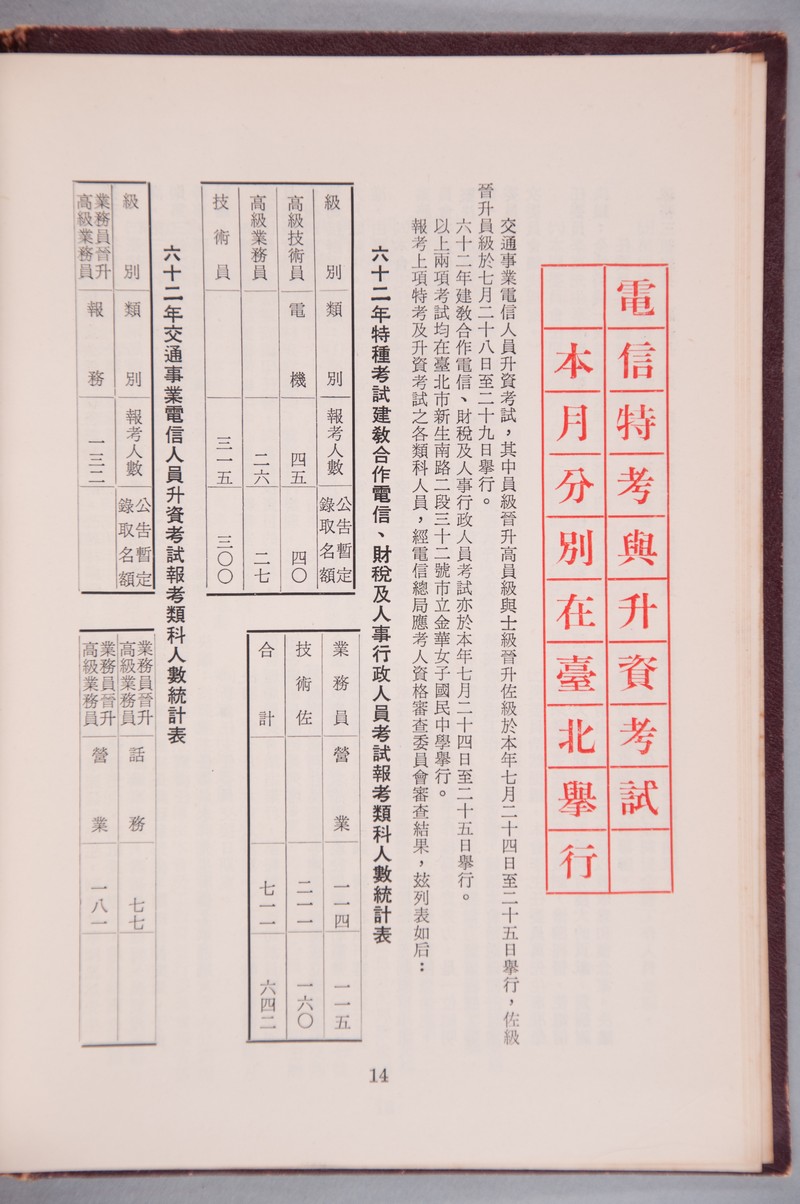 電信特考與升資考試
本月分別在臺北舉行
交通事業電信人員升資考試，其中員級晉升高員級與士級晉升佐級於本年七月二十四日至二十五日舉行，佐級
晉升員級於七月二十八日至二十九日舉行。
六十二年建教合作電信、財稅及人事行政人員考試亦於本年七月二十四日至二十五日舉行。
以上兩項考試均在臺北市新生南路二段三十二號市立金華女子國民中學舉行。
報考上項特考及升資考試之各類科人員，經電信總局應考人資格審查委員會審查結果，玆列表如后：
六十二年特種考試建教合作電信、財稅及人事行政人員考試報考類科人數統計表
級別 類別 報考人數 公告暫定錄取名額
高級技術員 電機 四五 四〇
高級業務員 二六 二七
技術員 三一五 三〇〇
業務員 營業 一一四 一一五
技術佐 二一一 一六〇
合計 七一一 六四二
六十二年交通事業電信人員升資考試報考類科人數統計表
級別 類別 報考人數 公告暫定錄取名額
業務員晉升高級業務員 報務 一三二
業務員晉升高級業務員 話務 七七
業務員晉升高級業務員 營業 一八一
14